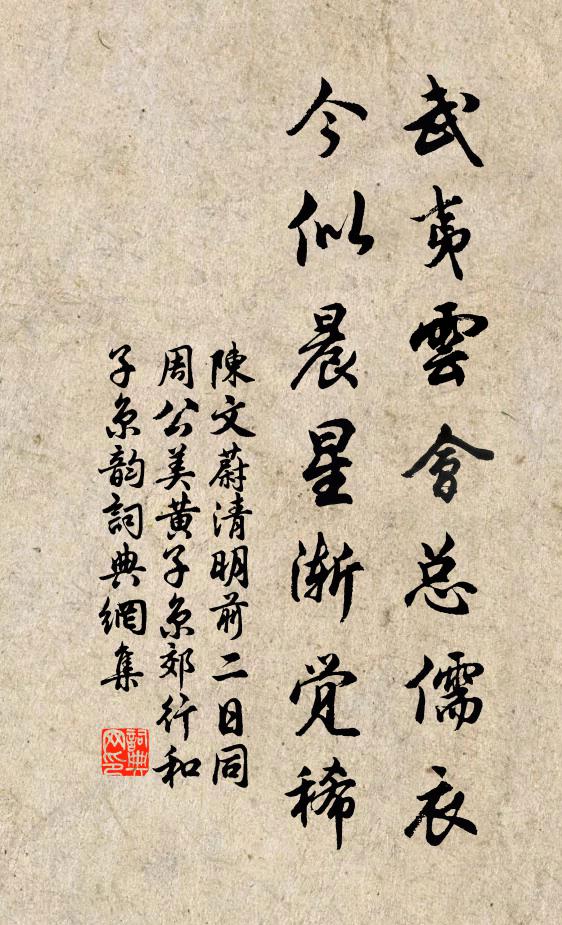 武夷雲會总儒衣
今似晨星渐覺稀
陳文蔚清明前二日同
周公美黄子京郊行和
子京韵詞典網集
詞典
网印